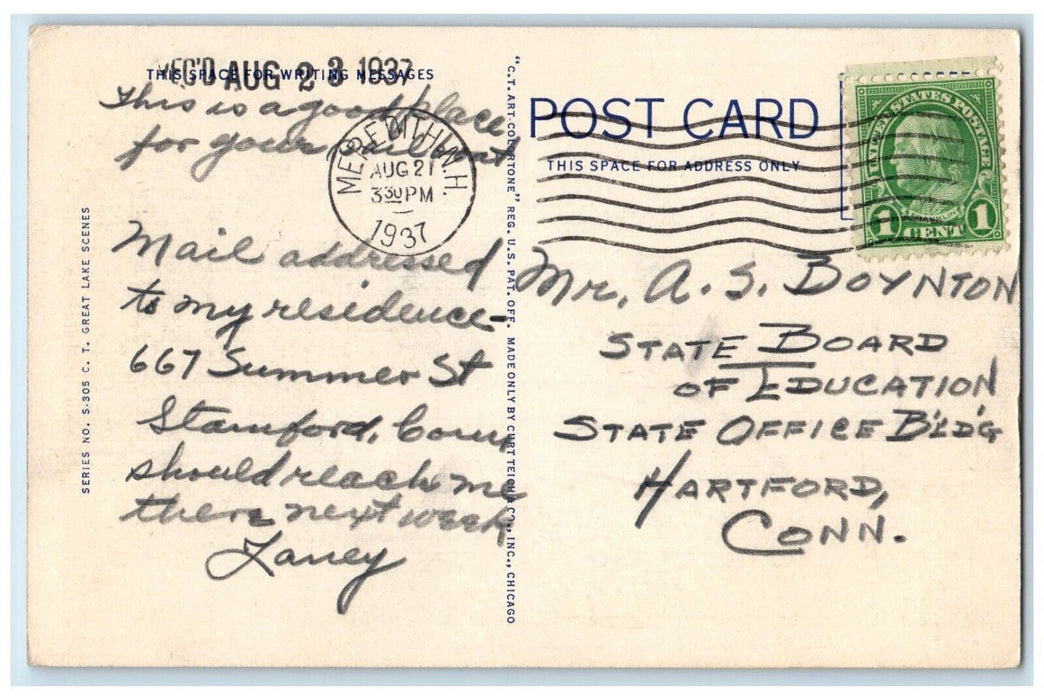 REC'D AUG 23 1937
THIS SPACE FOR WRITING MESSAGES
This is a good place
for your
Mail addressed
to my residence-
667 Summer St
Stamford, Conn
should reach me
there next week
Laney
MEREDITH N.H.
AUG 21
3 30 PM
1937
SERIES NO. S-305 C. T. GREAT LAKE SCENES
"C.T. ART-COLORTONE" REG. U.S. PAT. OFF. MADE ONLY BY CURT TEICH & CO., INC., CHICAGO
POST CARD
THIS SPACE FOR ADDRESS ONLY
UNITED STATES POSTAGE
FRANKLIN
1 CENT 1
Mr. A. S. BOYNTON
STATE BOARD
OF EDUCATION
STATE OFFICE BLDG
HARTFORD,
CONN.